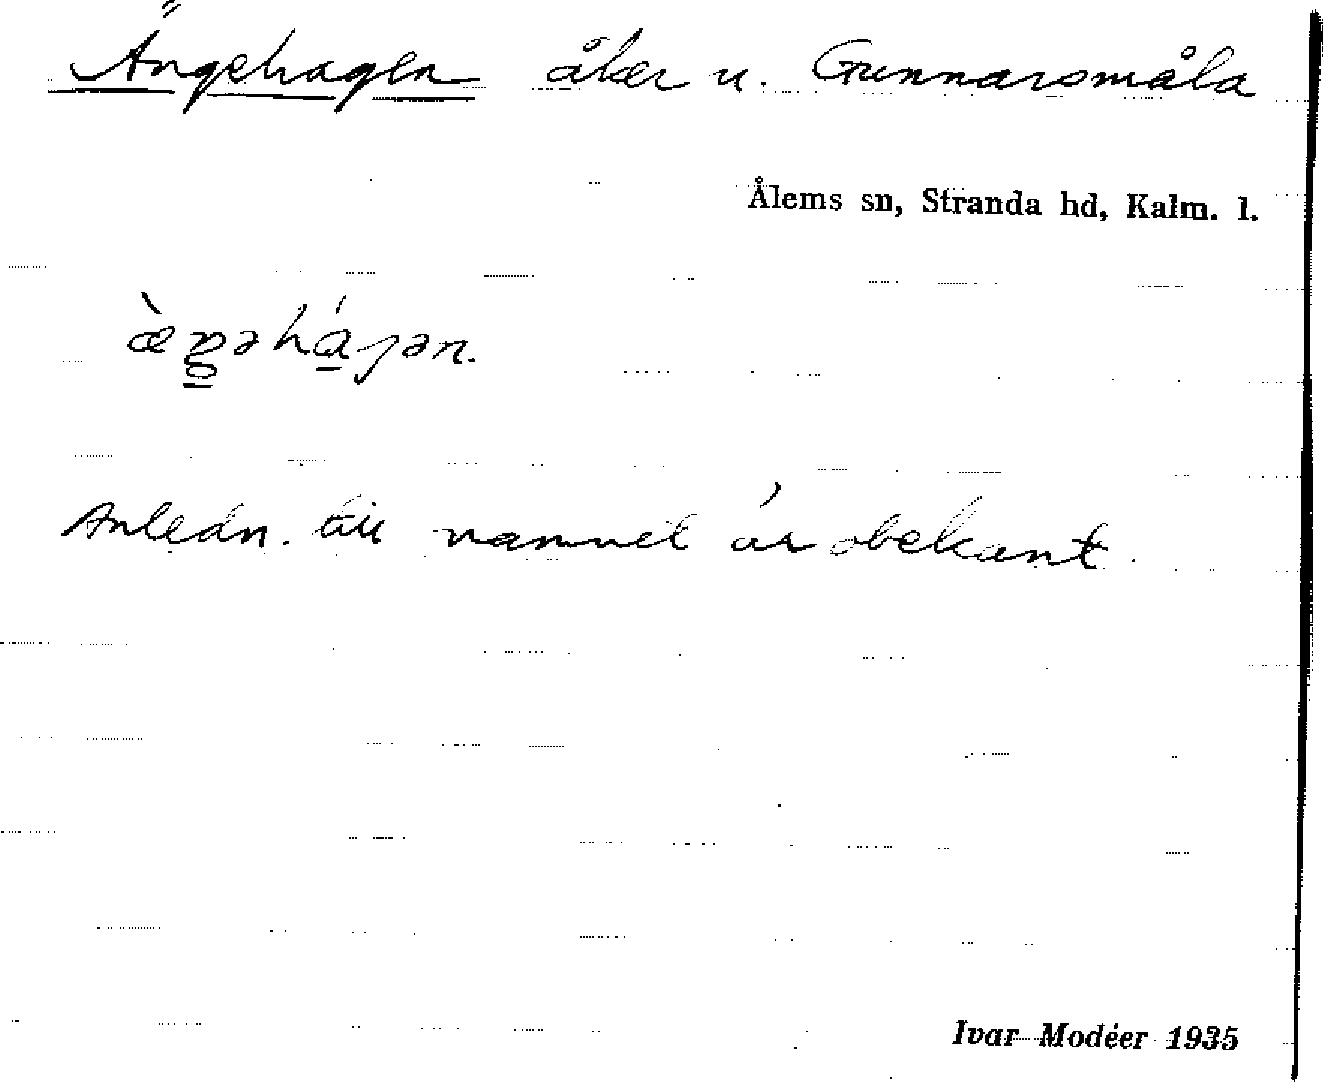 Ängehagen åker u. Gunnarsmåla
Ålems sn, Stranda hd, Kalm. l.
Anledn. till namnet är obekant.
Ivar Modéer 1935